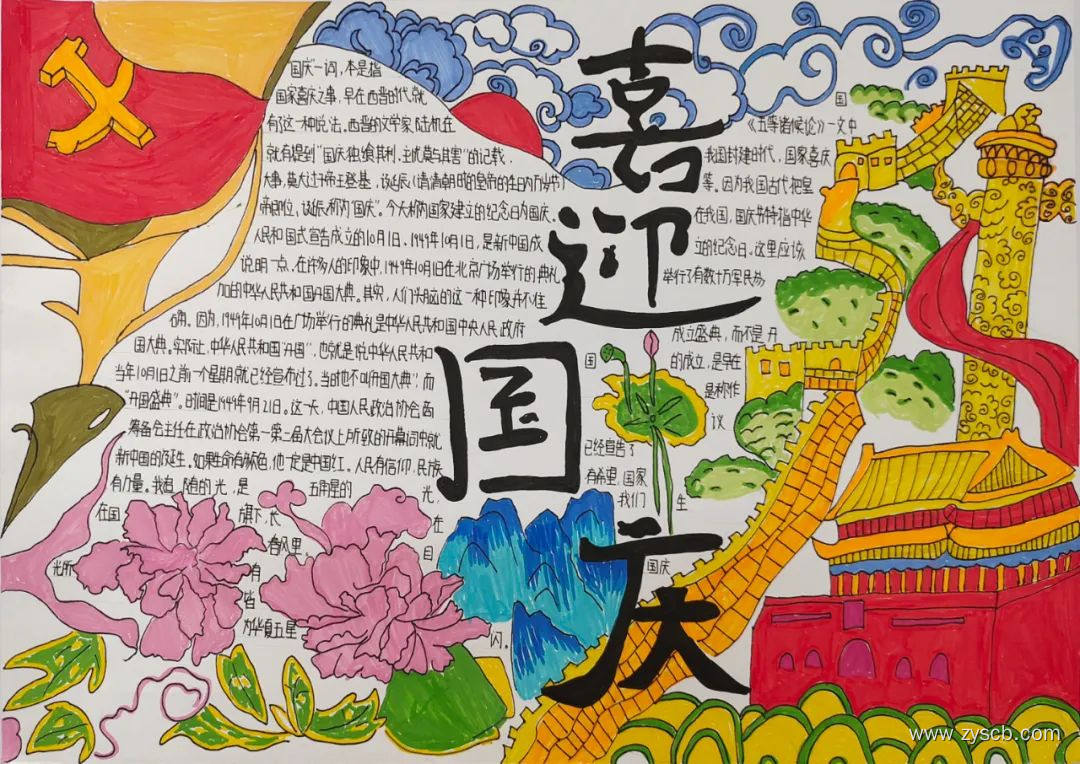 喜迎国庆
"国庆"一词,本是指
国家喜庆之事,早在西晋的时代就
有这一种说法。西晋的文学家陆机在 国 《五等诸侯论》一文中
就有提到"国庆独飨其利,主忧莫与其害"的记载, 我国封建时代,国家喜庆
大事,莫大过于帝王登基、诞辰(清朝 等。因为我国古代把皇
帝即位、诞辰称为"国庆"。今天称为国家建立的纪念日为国庆。 在我国,国庆节特指中华
人民和国式宣告成立的10月1日。1949年10月1日,是新中国成 立的纪念日。这里应该
说明一点,在许多人的印象中,1949年10月1日在北京广场举行的典礼 举行了有数十万军民
加的中华人民共和国开国大典。其实,人们头脑的这一种印象并不准
确。因为,1949年10月1日在广场举行的典礼是中华人民共和国中央人民政府 成立盛典,而不是开
国大典。实际上,中华人民共和国"开国",也就是说中华人民共和 国 的成立,是早在
当年10月1日之前一个星期就已经宣布过了。当时也不叫"开国大典",而 是称作
"开国盛典"。时间是1949年9月21日。这一天,中国人民政治协会商 议
筹备会主任在政治协会第一第三届大会议上所致的开幕词中就 已经宣告了
新中国的诞生。如果生命有颜色,他一定是中国红。人民有信仰,民族 有希望,国家
有力量。我追随的光,是 五角星的 光, 我们 生
在国 旗下,长 在
春风里。 目
光所 有 国庆
皆
为华夏五星 闪。
www.zyscb.com